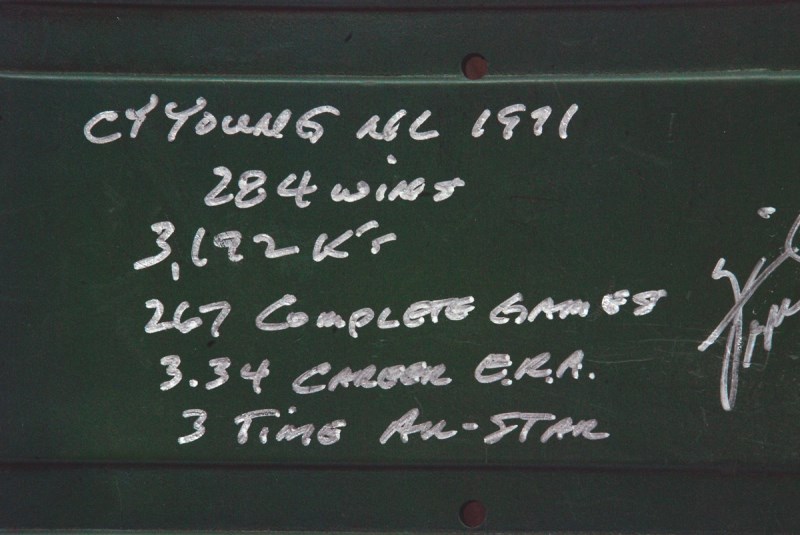 CY YOUNG NL 1971
284 WINS
3,192 K's
267 COMPLETE GAMES
3.34 CAREER E.R.A.
3 TIME ALL-STAR